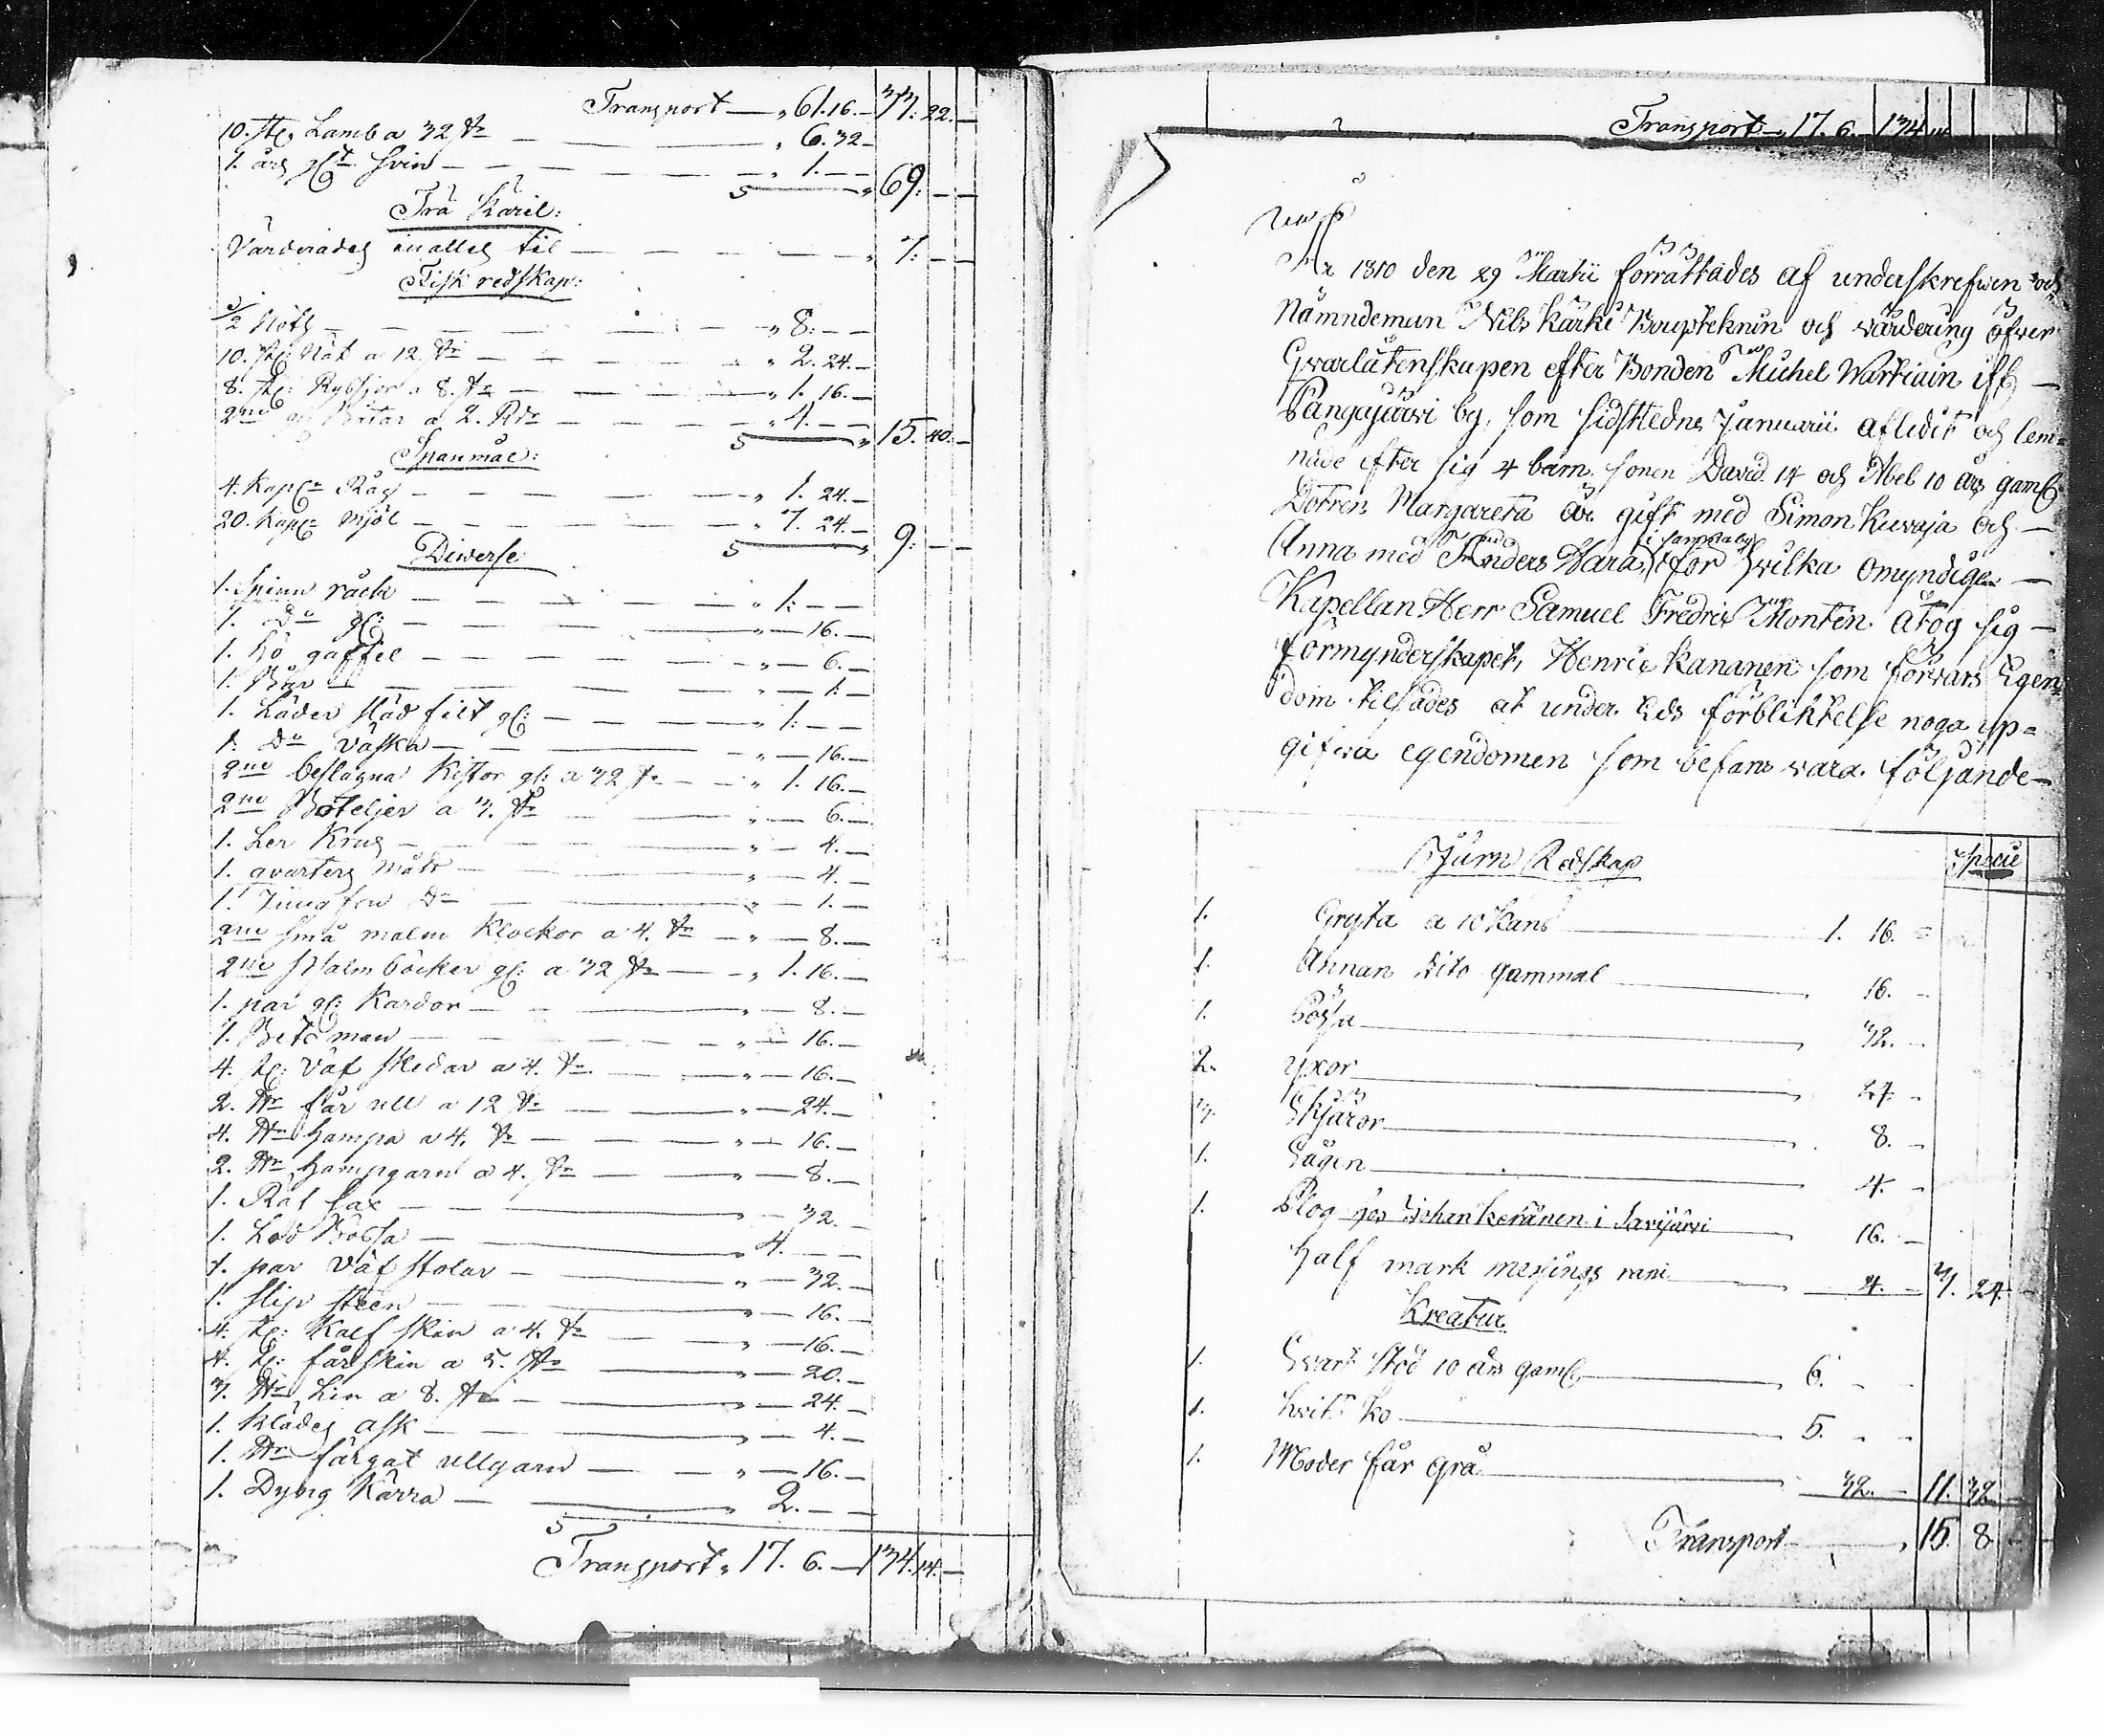 Transport — „ 61. 16. — 33. 22. —
10. st: Lamb a 32 s — „ 6. 32 —
1. års gl: Svin — „ 1. — —
S — „ 69: — —
Trä Käril:
Värderades in alles til — „ 7: — —
Fisk redskap:
1/2 Noth — „ 8: — —
10. st: Nät a 12 s — „ 2. 24. —
8. st: Rysjor a 8. s — „ 1. 16. —
2ne gl: Båtar a 2. Rdr — „ 4. — —
S — „ 15. 40. —
Spanmål:
4. Kapr Råg — „ 1. 24. —
20. Kapr Mjöl — „ 7. 24. —
S — „ 9: — —
Diverse
1. Spinn råck — „ 1: — —
1. Do gl: — „ — 16. —
1. hö gaffel — „ — 6. —
1. — „ — 1: —
1. Läder släd filt gl: — „ 1: — —
1: Do Väska — „ — 16. —
2ne beslagna Kistor gl: a 32 s — „ 1. 16. —
2ne Boteljer a 3. s — „ — 6. —
1. Ler Krus — „ — 4. —
1. qvarters mått — „ — 4. —
1. Jungfru Do — „ — 1. —
2ne små malm Klockor a 4. s — „ — 8. —
2ne Psalm böcker gl: a 32 s — „ 1. 16. —
1. par gl: Kardor — „ — 8. —
1. Betsman — „ — 16. —
4. st: Väf skedar a 4. s — „ — 16. —
2. får ull a 12 s — „ — 24. —
4. hampa a 4. s — „ — 16. —
2. hampgarn a 4. s — „ — 8. —
1. Råt sax — „ — 32. —
1. Lod Bössa — „ 4. — —
1. par Väf stolar — „ — 32. —
1. Slip steen — „ — 16. —
4. st: Kalf skin a 4. s — „ — 16. —
4. st: får skin a 5. s — „ — 20. —
3. Lin a 8. s — „ — 24. —
1. Klädes ask — „ — 4. —
1. färgat ullgarn — „ — 16. —
1. Dyng Kärra — „ 2. — —
Transport „ 17. 6. — 134. 14. —
Transport — „ 17. 6. — 134 14
År 1810 den 29 Martii förrättades af underskrefwen och
Nämndeman Nils Kärki Boupteknin och wärdering öfwer
Qwarlåtenskapen efter Bonden Michel Wartiain ifr —
Pangajärwi by, som sidstledne Januarii afledit och lem=
nade efter sig 4 barn, sonen David 14 och Abel 10 års gaml:
Dottren Margareta är gift med Simon Kuvaja och —
Anna med Anders Hara, för hwilka omyndiga —
Kapellan Herr Samuel Fredric Montin åtog sig —
förmynderskapet, Henric Kananen som förwars Egen=
dom tilsades at under Eds förbliktelse noga up=
gifwa egendomen som befans wara följande —
Järn Redskap
Specie
1. Gryta a 10 Kans — 1. 16. =
1. Annan dito gammal — 16. -
1. Bössa — 32. -
2. yxor — 24. -
3. Skjäror — 8. -
1. Sågen — 4. -
1. Plog hos Johan Keränen i Sarijärwi — 16. -
half mark mesings — 4. - 3. 24. -
Kreatur
1. Swart stod 10 års gaml: — 6. - -
1. hwit Ko — 5. - -
1. Moder får grå — 32. — 11. 32 -
Transport — , 15. 8 -